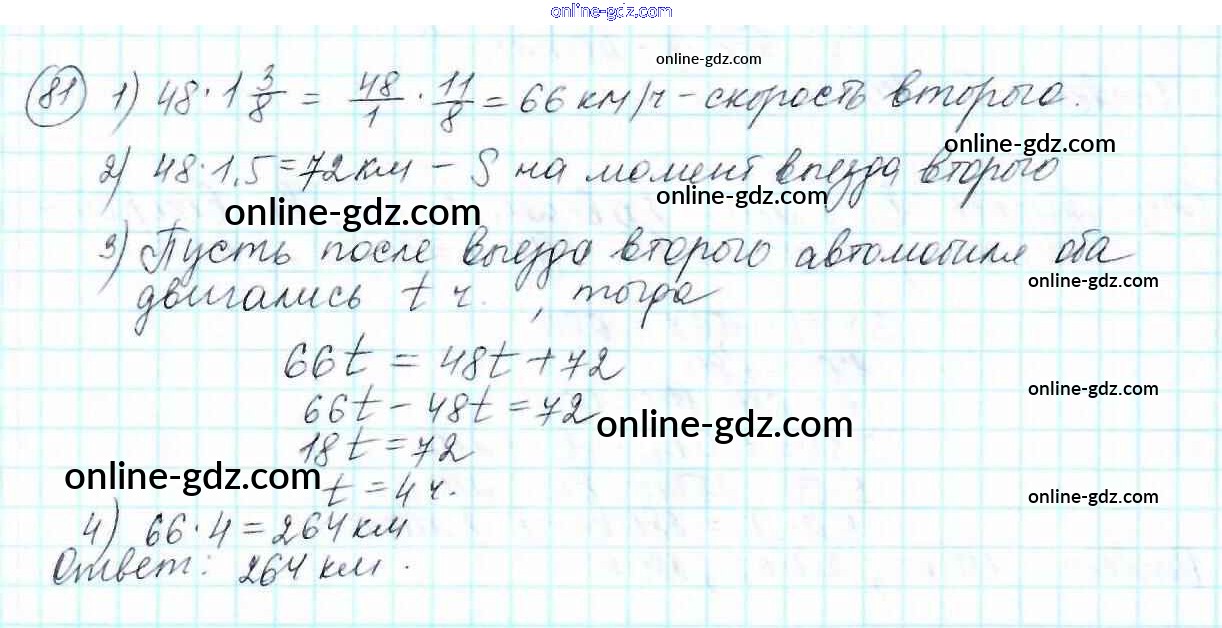 online-gdz.com
online-gdz.com
81 1) 48 · 1 3/8 = 48/1 · 11/8 = 66 км/ч – скорость второго.
online-gdz.com
2) 48 · 1,5 = 72 км – S на момент выезда второго
online-gdz.com
online-gdz.com
3) Пусть после выезда второго автомобиля оба
online-gdz.com
двигались t ч., тогда
66t = 48t + 72
online-gdz.com
66t – 48t = 72
online-gdz.com
18t = 72
online-gdz.com
t = 4 ч.
online-gdz.com
4) 66 · 4 = 264 км
Ответ: 264 км.